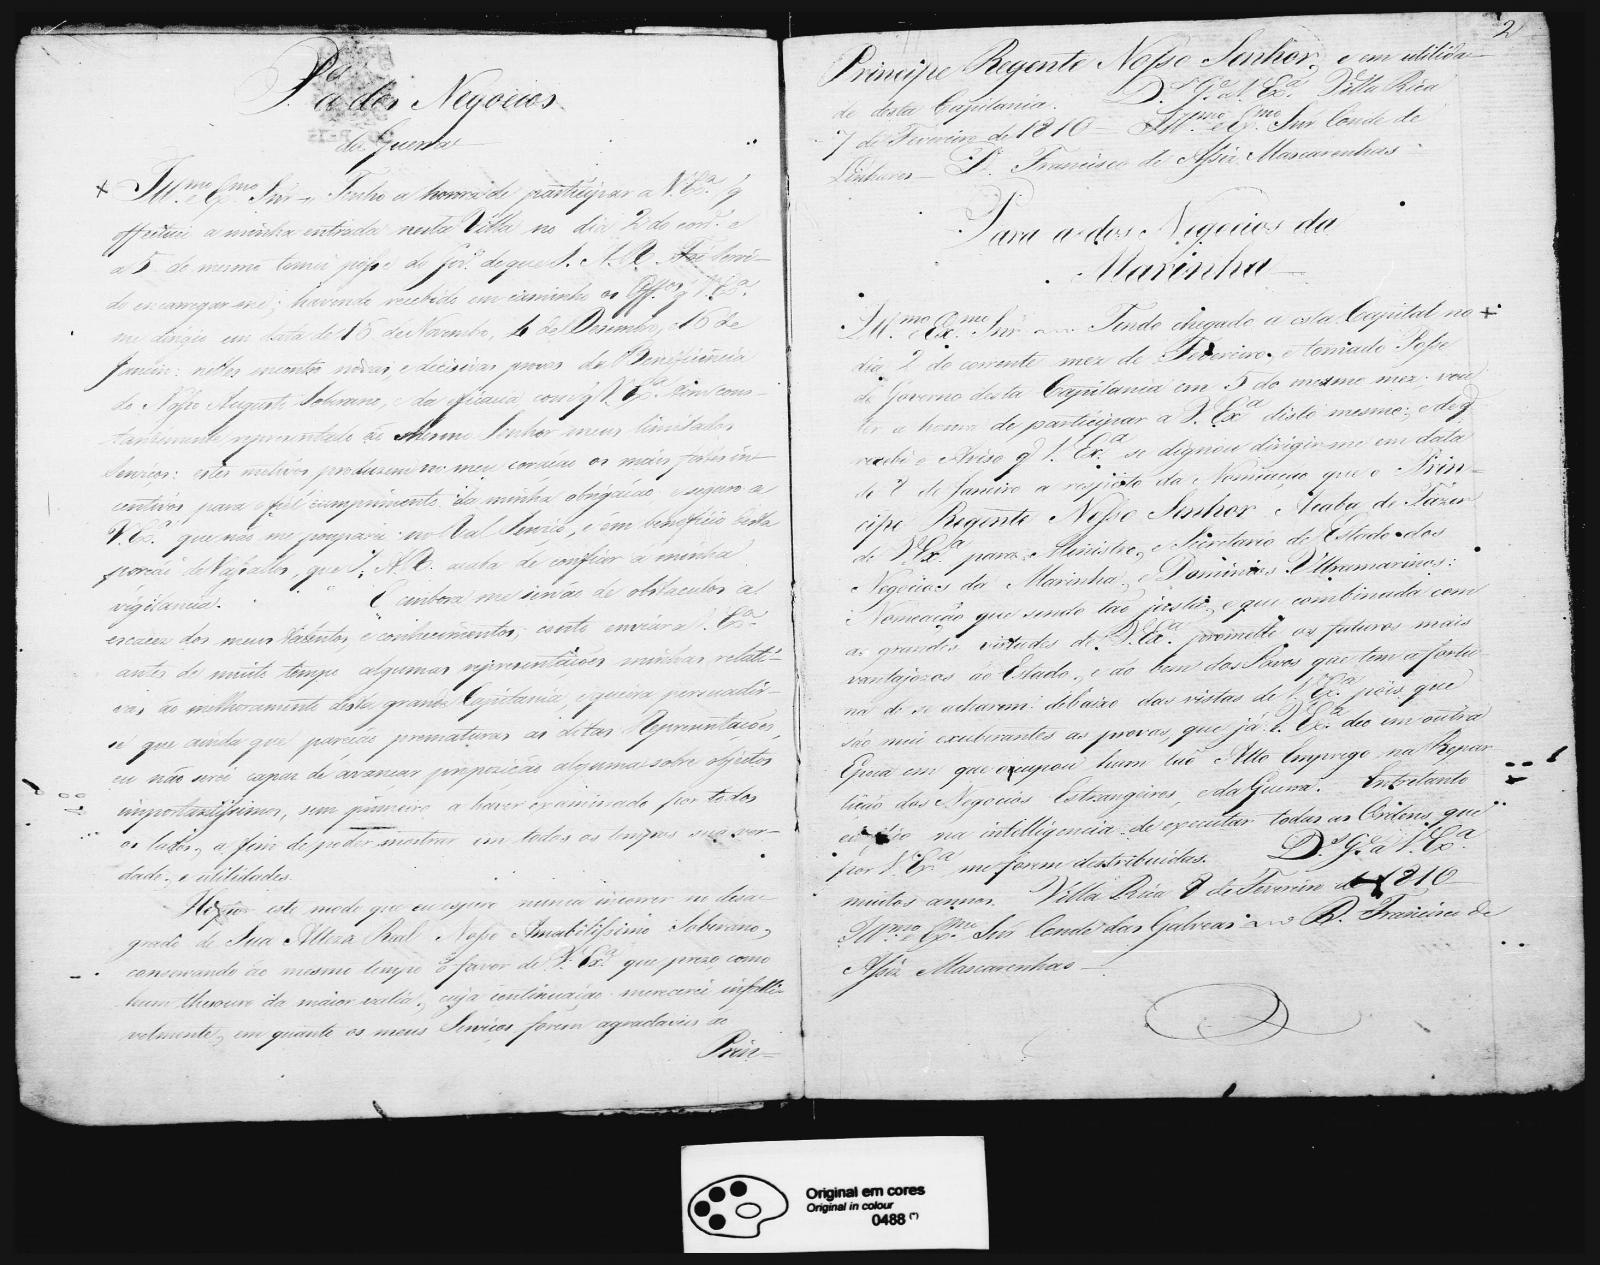 P.ª a dos Negocios
da Guerra
Ill.mo e Ex.mo Snr Tenho a honra de participar a V. Ex.ª q
effetuei a minha entrada nesta Villa no dia 2 do corr.e e
a 5 do mesmo tomei posse do Gov.º de que S. A. R. Foi Servi-
do encarregar-me; havendo recebido em caminho os Off.os q V. Ex.ª
me dirigio em data de 15 de Novembro, 4 de Dezembro, e 16 de
Janeiro: nelles encontro novas, e decisivas provas da Beneficiencia
do Nosso Augusto Soberano, e da efficacia com q V. Ex.ª tem cons-
tantemente representado ao mesmo Senhor meus limitados
Servicos: estes motivos produzem no meu coração os mais fortes in-
centivos para o fiel cumprimento da minha obrigação, e seguro a
V. Ex.ª que não me pouparei no Real Servico, e em beneficio desta
porção de Vassallos, que S. A. R. acaba de confiar á minha
vigilancia. Embora me sirvão de obstaculos a
escacez dos meus talentos, e conhecimentos; conto enviar a V. Ex.ª
antes de muito tempo algumas representações minhas relati-
vas ao melhoramento desta grande Capitania, e queira persuadir-
se que ainda que pareção prematuras as ditas Representações,
eu não serei capaz de avançar proposição alguma sobre objetos
importantissimos, sem primeiro a haver examinado por todos
os lados, a fim de poder mostrar em todos os tempos sua ver-
dade, e utilidades.
He por este modo que eu espero nunca incorrer no desa-
grado de Sua Alteza Real Nosso Amabilissimo Soberano,
conservando ao mesmo tempo o favor de V. Ex.ª que prezo, como
hum thesouro da maior valia, cuja continuação merecerei infalli-
velmente, em quanto os meus Servicos forem agradaveis ao
Prin-
2
Principe Regente Nosso Senhor, e em utilida-
de desta Capitania. D.s G.e a V. Ex.ª Villa Rica
7 de Fevereiro de 1810 - Ill.mo e Ex.mo Snr Conde de
Linhares - D. Francisco de Assis Mascarenhas
Para a dos Negocios da
Marinha
Ill.mo e Ex.mo Snr Tendo chegado a esta Capital no
dia 2 do corrente mez de Fevereiro, e tomado Posse
do Governo desta Capitania em 5 do mesmo mez; vou
ter a honra de participar a V. Ex.ª disto mesmo; e de q
recebi o Aviso q V. Ex.ª se dignou dirigir-me em data
de 2 de Janeiro a respeito da Nomeação que o Prin-
cipe Regente Nosso Senhor Acaba de Fazer
de V. Ex.ª para Ministro, e Secretario de Estado dos
Negocios da Marinha, e Dominios Ultramarinos:
Nomeação que sendo tão justa, e que combinada com
as grandes virtudes de V. Ex.ª promette os futuros mais
vantajozos ao Estado, e ao bem dos Povos que tem a fortu-
na de se acharem debaixo das vistas de V. Ex.ª pois que
são mui exuberantes as provas, que já V. Ex.ª deo em outra
Epoca em que occupou hum tão Alto Emprego na Repar-
tição dos Negocios Estrangeiros, e da Guerra. Entretanto
eu fico na intelligencia de executar todas as Ordens que
por V. Ex.ª me forem destribuidas. D.s G.e a V. Ex.ª
muitos annos. Villa Rica 7 de Fevereiro de 1810
Ill.mo e Ex.mo Snr Conde das Galveas D. Francisco de
Assis Mascarenhas
Original em cores
Original in colour
0488 (*)